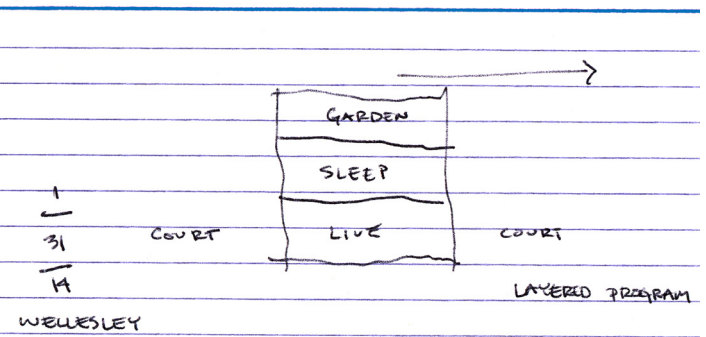 GARDEN
SLEEP
1
31
14
COURT LIVE COURT
LAYERED PROGRAM
WELLESLEY